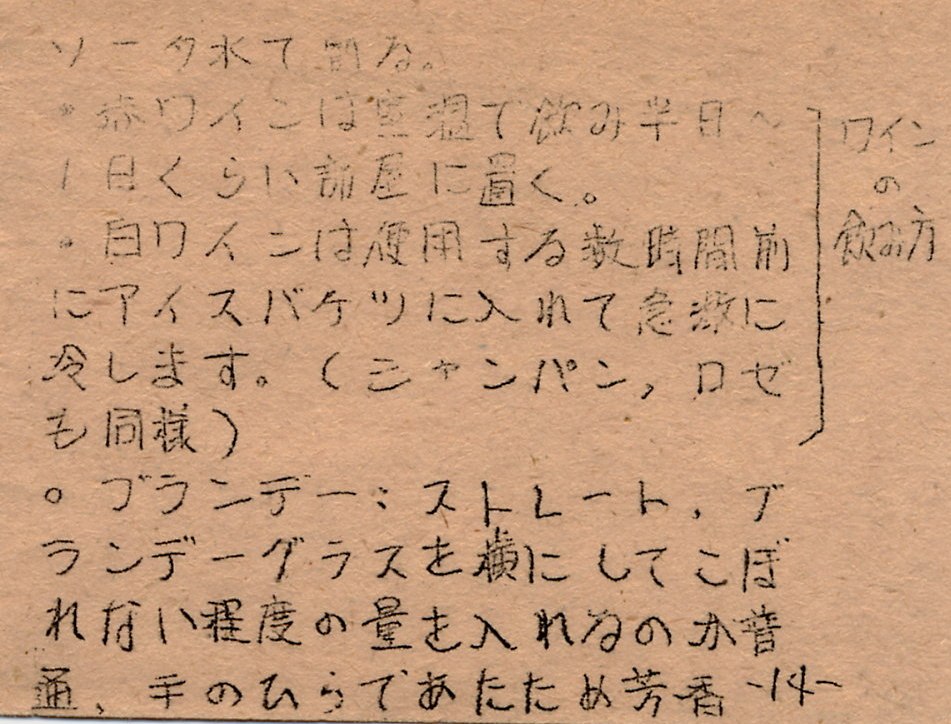 ソーダ水で割る。
• 赤ワインは室温で飲み半日~
1日くらい部屋に置く。
• 白ワインは使用する数時間前
にアイスバケツに入れて急激に
冷します。(シャンパン,ロゼ
も同様)
ワイン
の
飲み方
○ ブランデー:ストレート.ブ
ランデーグラスを横にしてこぼ
れない程度の量を入れるのが普
通、手のひらであたため芳香
-14-